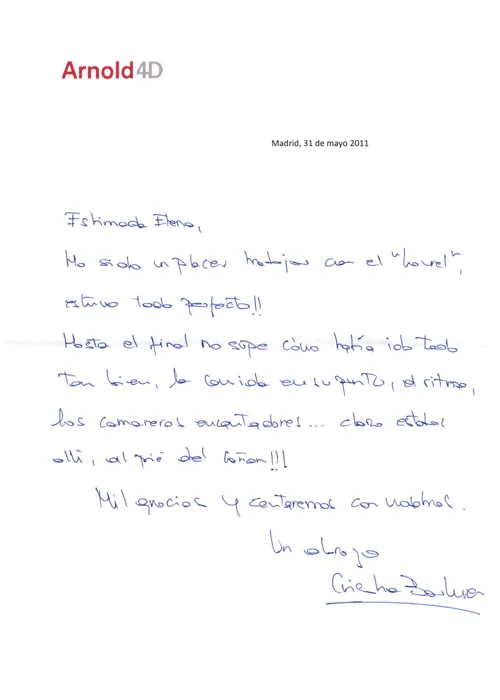 Arnold4D
Madrid, 31 de mayo 2011
Estimada Elena,
Ha sido un placer trabajar con el "Laurel",
estuvo todo perfecto!!
Hasta el final no supe cómo había ido todo
tan bien, la comida en su punto, el ritmo,
los camareros encantadores... claro estabas
allí, al pié del cañon!!!
Mil gracias y contaremos con vosotros.
Un abrazo